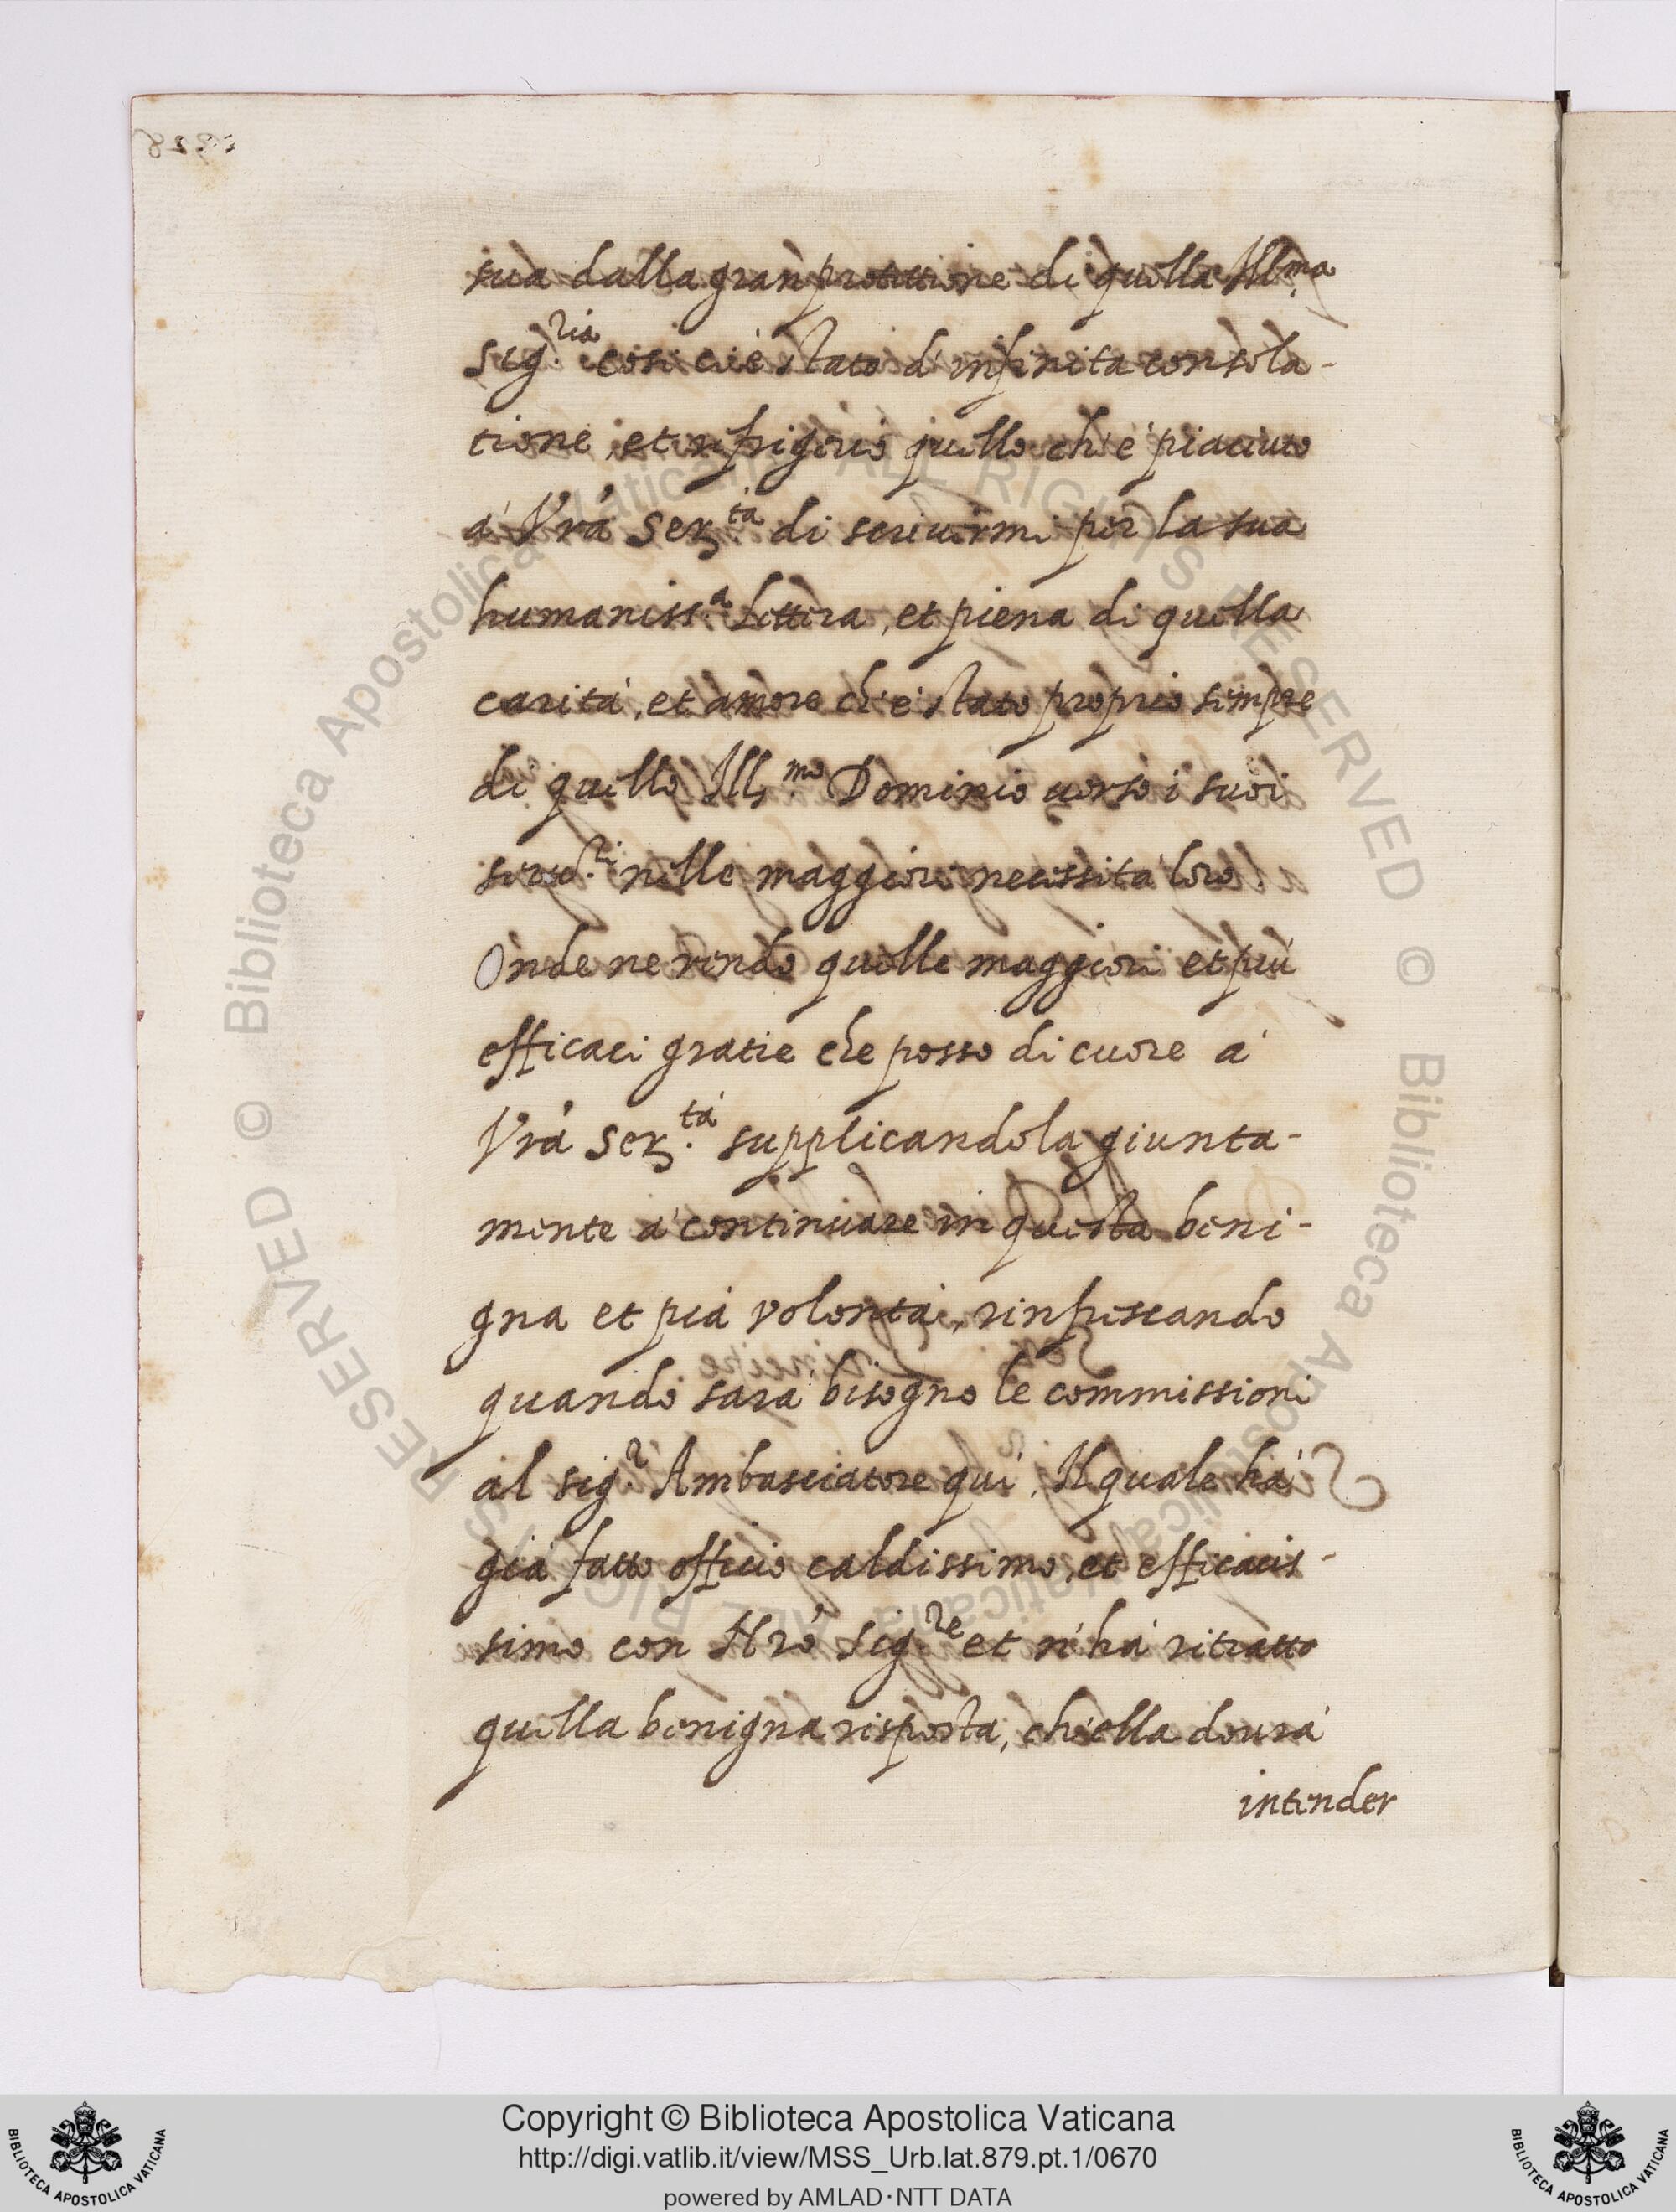 sua dalla gran protettione di quella Ill.ma
sig.ria cosi ci è stato d'infinita consola-
tione, et refrigerio quello ch'è piaciuto
à Vrã Ser.tà di scrivermi per la sua
humaniss.a Lettera, et piena di quella
carità, et amore ch'è stato proprio sempre
di quello Ill.mo Dominio verso i suoi
serv.ri nelle maggiori necessità loro.
Onde ne rendo quelle maggiori et più
efficaci gratie che posso di cuore à
Vrã Ser.tà supplicandola giunta-
mente à continuare in questa beni-
gna et pia volontà, rinfrescando
quando sarà bisogno le commissioni
al sig.r Ambasciatore qui, Il quale hà
già fatto officio caldissimo, et efficacis-
simo con Nrõ Sig.re et n'hà ritratto
quella benigna risposta, ch'ella dourà
intender
© Biblioteca Apostolica Vaticana ALL RIGHTS RESERVED © Biblioteca Apostolica Vaticana ALL RIGHTS RESERVED
Copyright © Biblioteca Apostolica Vaticana
http://digi.vatlib.it/view/MSS_Urb.lat.879.pt.1/0670
powered by AMLAD·NTT DATA
BIBLIOTECA APOSTOLICA VATICANA
BIBLIOTECA APOSTOLICA VATICANA